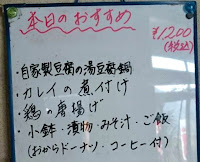 本日のおすすめ
¥1,200
(税込)
・自家製豆腐の湯豆腐鍋
・カレイの煮付け
・鶏の唐揚げ
・小鉢・漬物・みそ汁・ご飯
(おからドーナツ・コーヒー付)